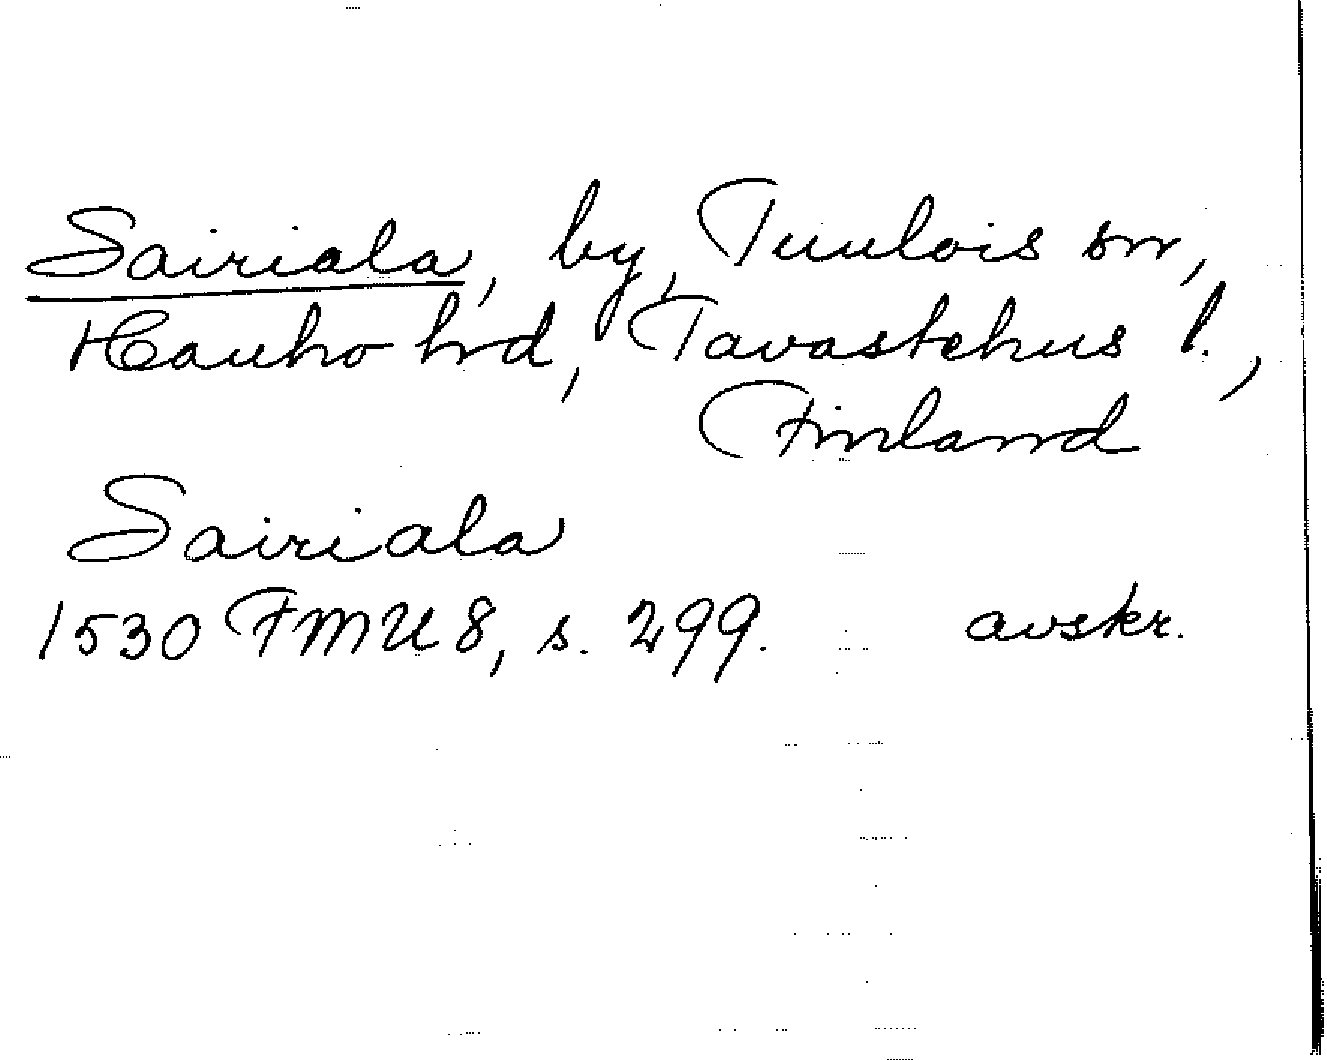 Sairiala, by, Tuulois sn,
Hauho hrd, Tavastehus l.,
Finland
Sairiala
1530 FMU 8, s. 299. avskr.